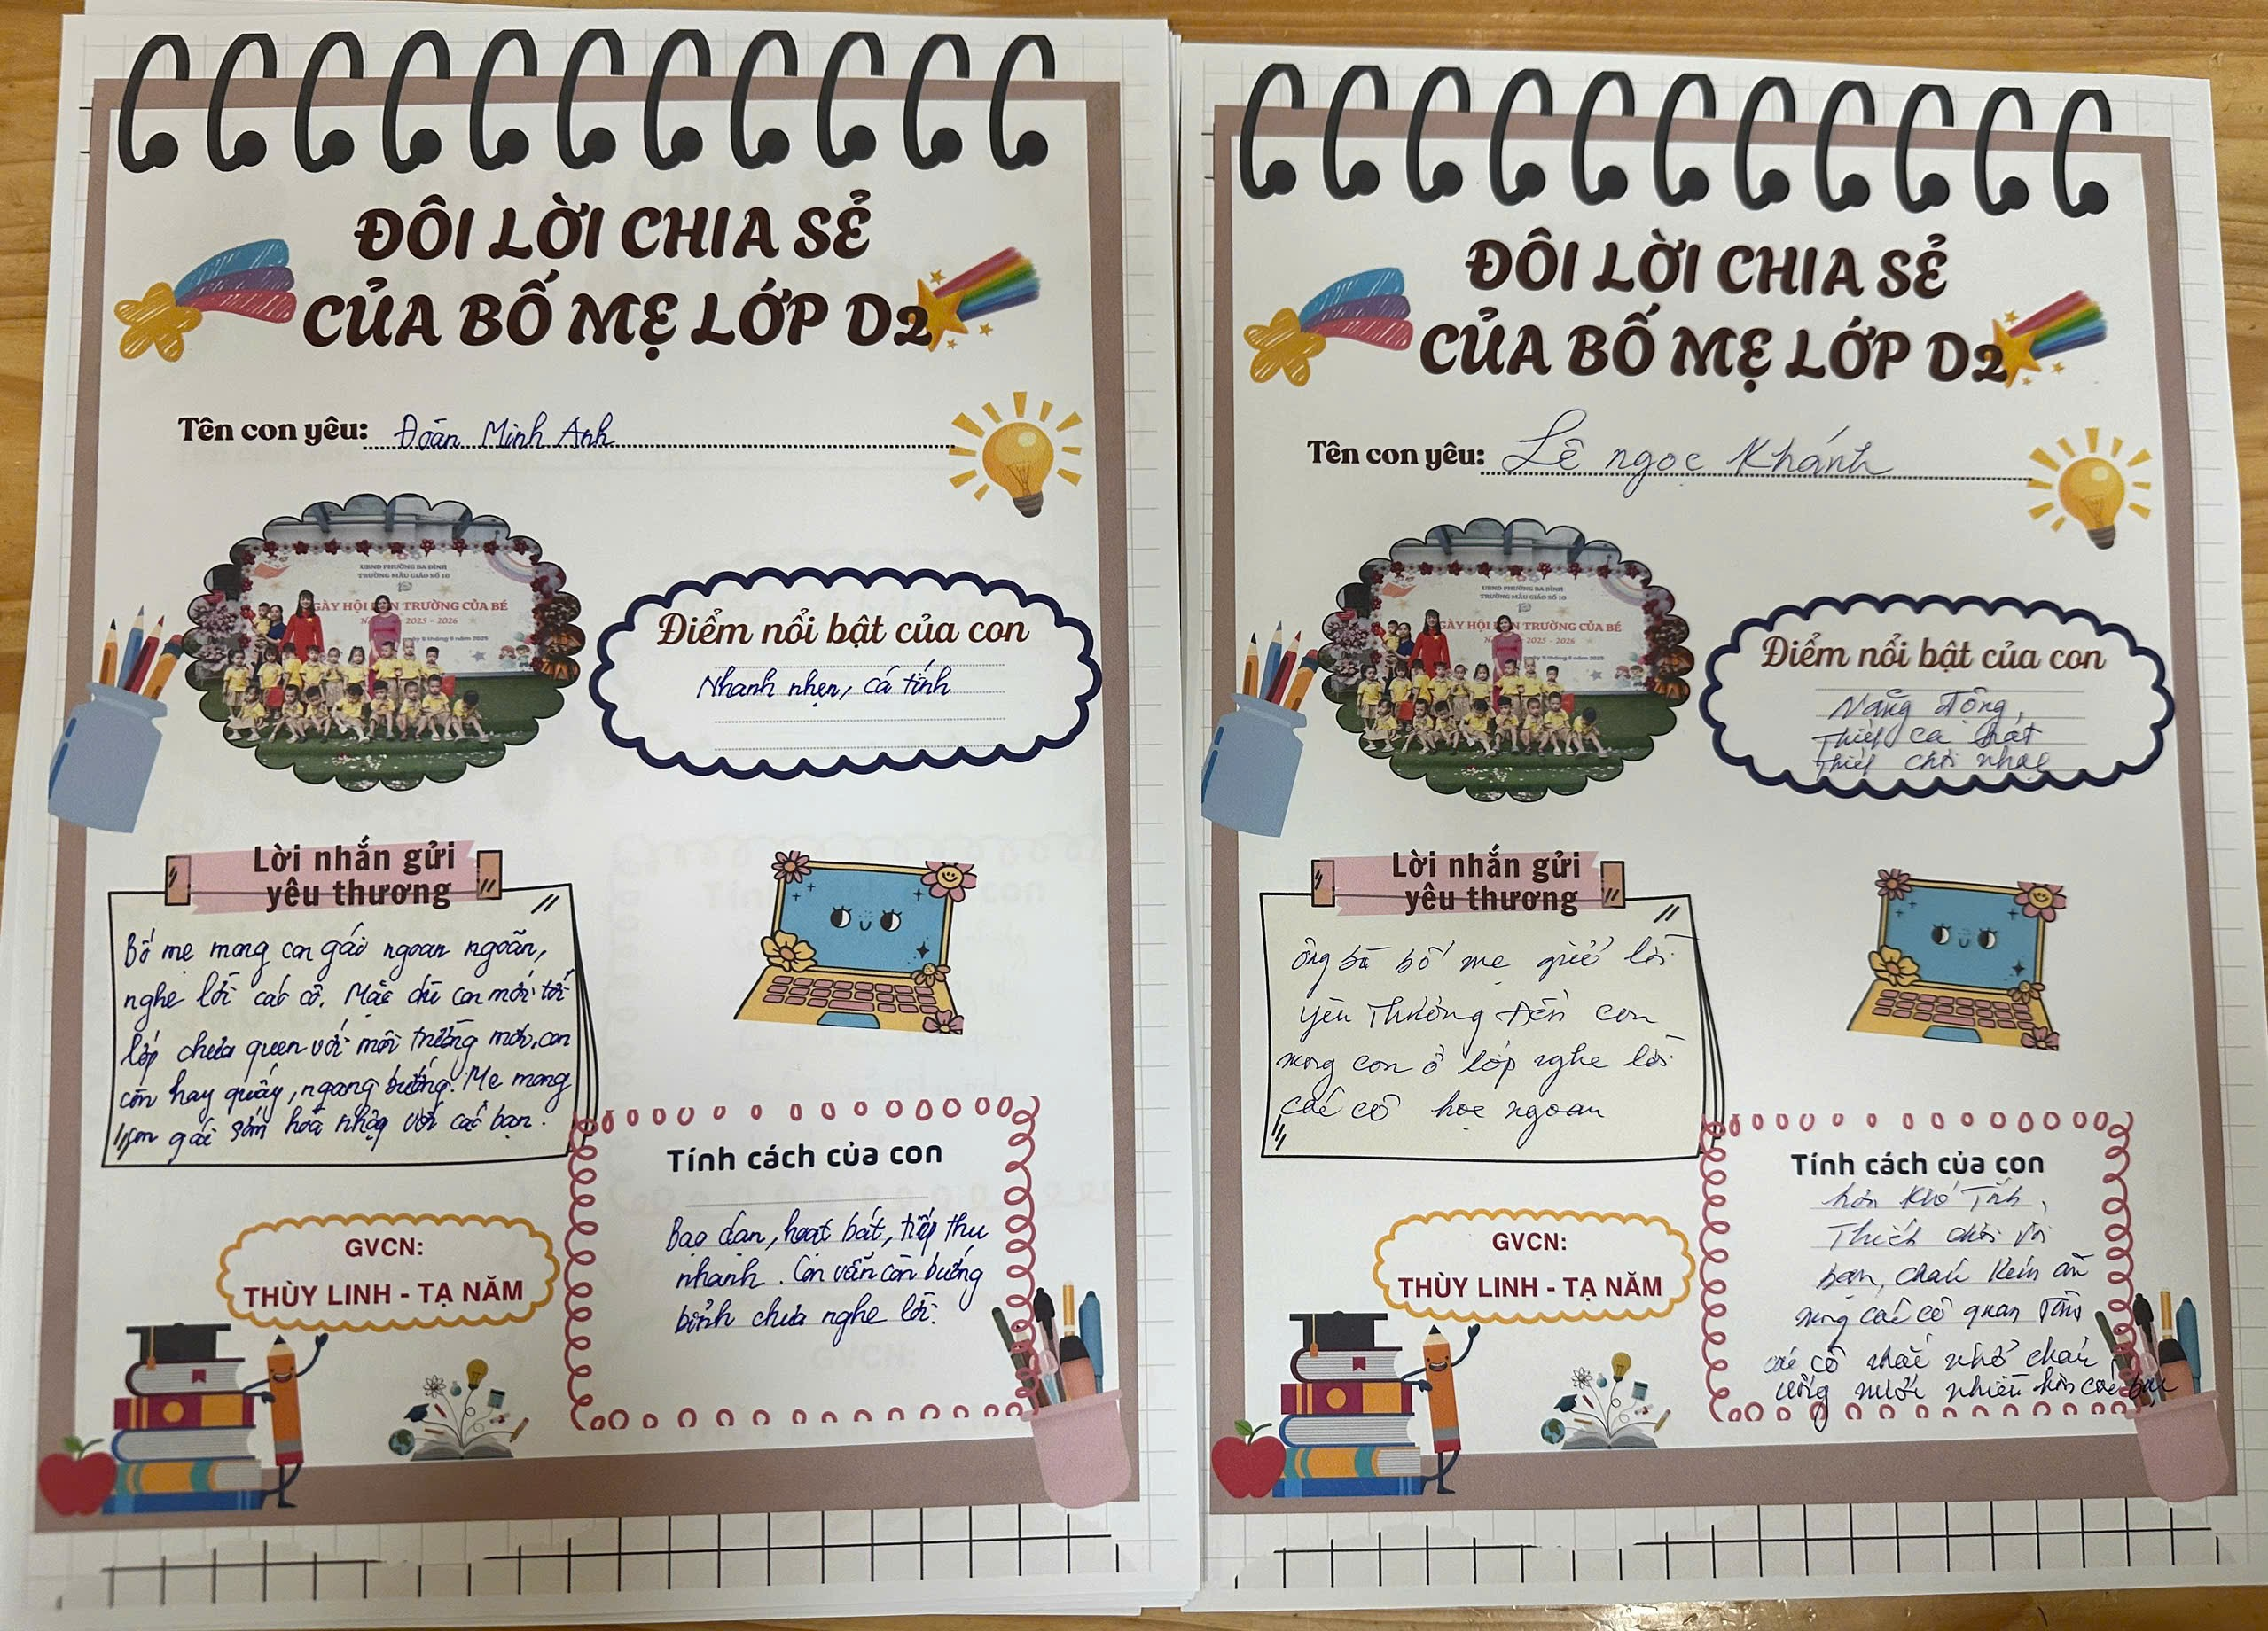 ĐÔI LỜI CHIA SẺ
CỦA BỐ MẸ LỚP D2
Tên con yêu: Đoàn Minh Anh
UBND PHƯỜNG BA ĐÌNH
TRƯỜNG MẪU GIÁO SỐ 10
GÀY HỘI TRƯỜNG CỦA BÉ
2025 - 2026
Điểm nổi bật của con
Nhanh nhẹn, cá tính
Lời nhắn gửi
yêu thương
Bố mẹ mong con gái ngoan ngoãn,
nghe lời các cô. Mặc dù con mới tới
lớp chưa quen với môi trường mới, con
còn hay quấy, ngang bướng. Mẹ mong
con gái sớm hòa nhập với các bạn.
Tính cách của con
Bạo dạn, hoạt bát, tiếp thu
nhanh. Con vẫn còn bướng
bỉnh chưa nghe lời.
GVCN:
THÙY LINH - TẠ NĂM
ĐÔI LỜI CHIA SẺ
CỦA BỐ MẸ LỚP D2
Tên con yêu: Lê ngọc Khánh
UBND PHƯỜNG BA ĐÌNH
TRƯỜNG MẪU GIÁO SỐ 10
GÀY HỘI TRƯỜNG CỦA BÉ
2025 - 2026
Điểm nổi bật của con
Năng động,
Thích ca hát
Thích chơi nhạc
Lời nhắn gửi
yêu thương
ông bà bố mẹ gửi lời
yêu Thương Đến con
mong con ở lớp nghe lời
các cô học ngoan
Tính cách của con
hơi khó Tính,
Thích chơi với
bạn, cháu kém ăn
mong các cô quan Tâm
các cô nhắc nhở cháu
uống nước nhiều hơn các bạn
GVCN:
THÙY LINH - TẠ NĂM